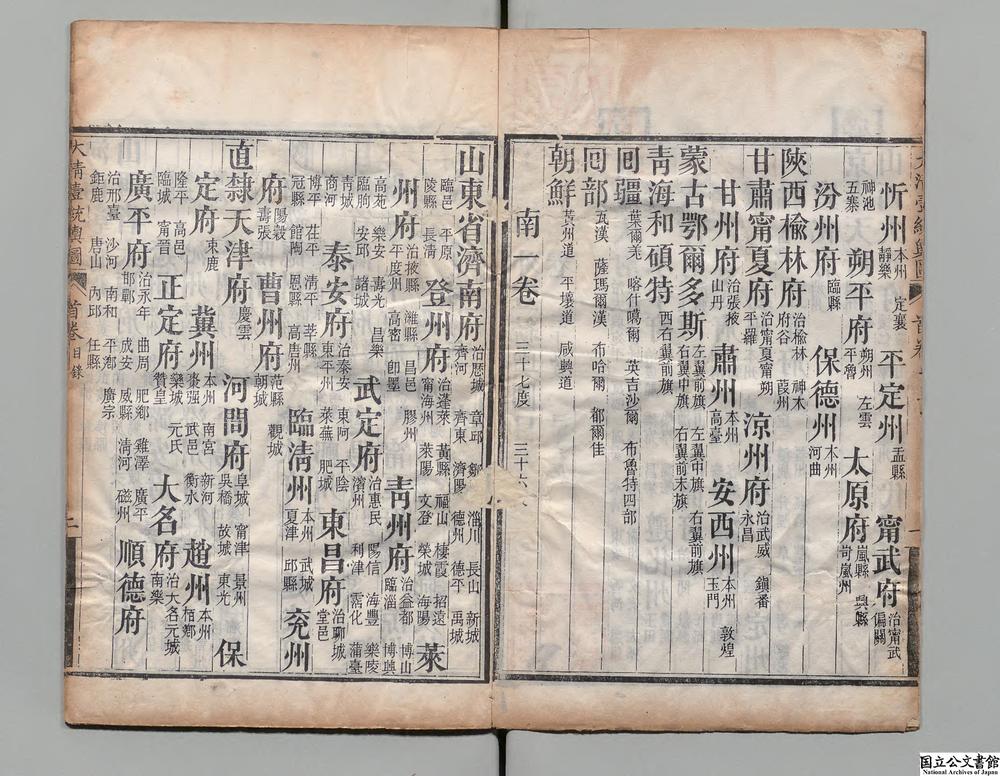 忻州 本州 定襄 靜樂 平定州 盂縣 甯武府 治甯武 偏關
神池 五寨 朔平府 朔州 左雲 平魯 太原府 嵐縣 興縣 岢嵐州
汾州府 臨縣 保德州 本州 河曲
陝西榆林府 治榆林 神木 府谷 葭州
甘肅甯夏府 治甯夏甯朔 平羅 涼州府 治武威 鎮番 永昌
甘州府 治張掖 山丹 肅州 本州 高臺 安西州 本州 敦煌 玉門
蒙古鄂爾多斯 左翼前旗 左翼中旗 右翼前旗 右翼中旗 右翼前末旗
青海和碩特 西右翼前旗
回疆 葉爾羌 喀什噶爾 英吉沙爾 布魯特四部
回部 瓦漢 薩瑪爾漢 布哈爾 都爾佳
朝鮮 黃州道 平壤道 咸興道
南一卷 三十七度 三十六
山東省濟南府 治歷城 章邱 鄒 淄川 長山 新城 齊河 齊東 濟陽 德州 德平 禹城
臨邑 平原 陵縣 長清 登州府 治蓬萊 黃縣 福山 棲霞 招遠 甯海州 萊陽 文登 榮城 海陽 萊
州府 治掖縣 濰縣 昌邑 膠州 平度州 高密 卽墨 青州府 治益都 博山 臨淄 博興
高苑 樂安 壽光 昌樂 臨朐 安邱 諸城 武定府 治惠民 陽信 海豐 樂陵 濱州 利津 霑化 蒲臺
青城 商河 泰安府 治泰安 東阿 平陰 東平州 萊蕪 肥城 東昌府 治聊城 堂邑
博平 茌平 清平 莘縣 冠縣 館陶 恩縣 高唐州 臨清州 本州 武城 夏津 邱縣 兗州
府 陽穀 壽張 曹州府 范縣 觀城 朝城
直隸天津府 慶雲 河間府 阜城 甯津 景州 吳橋 故城 東光 保
定府 束鹿 冀州 本州 南宮 新河 棗强 武邑 衡水 趙州 本州 柏鄉
隆平 高邑 臨城 甯晉 正定府 欒城 元氏 贊皇 大名府 治大名元城 南樂
廣平府 治永年 曲周 肥鄉 雞澤 廣平 邯鄲 成安 威縣 清河 磁州 順德府
治邢臺 沙河 南和 平鄉 廣宗 鉅鹿 唐山 內邱 任縣
大清壹統輿圖 首卷 目錄 二
国立公文書館
National Archives of Japan